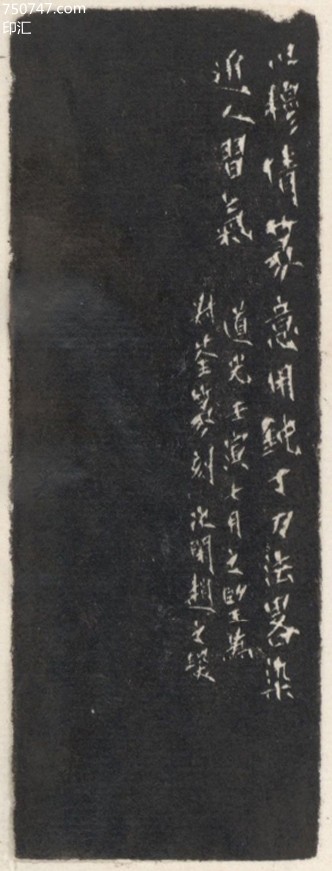 750747.com
印汇
以穆倩篆意用鈍丁刀法畧染
近人習氣
道光壬寅七月之朢爲
荃篆刻次閑趙之琛